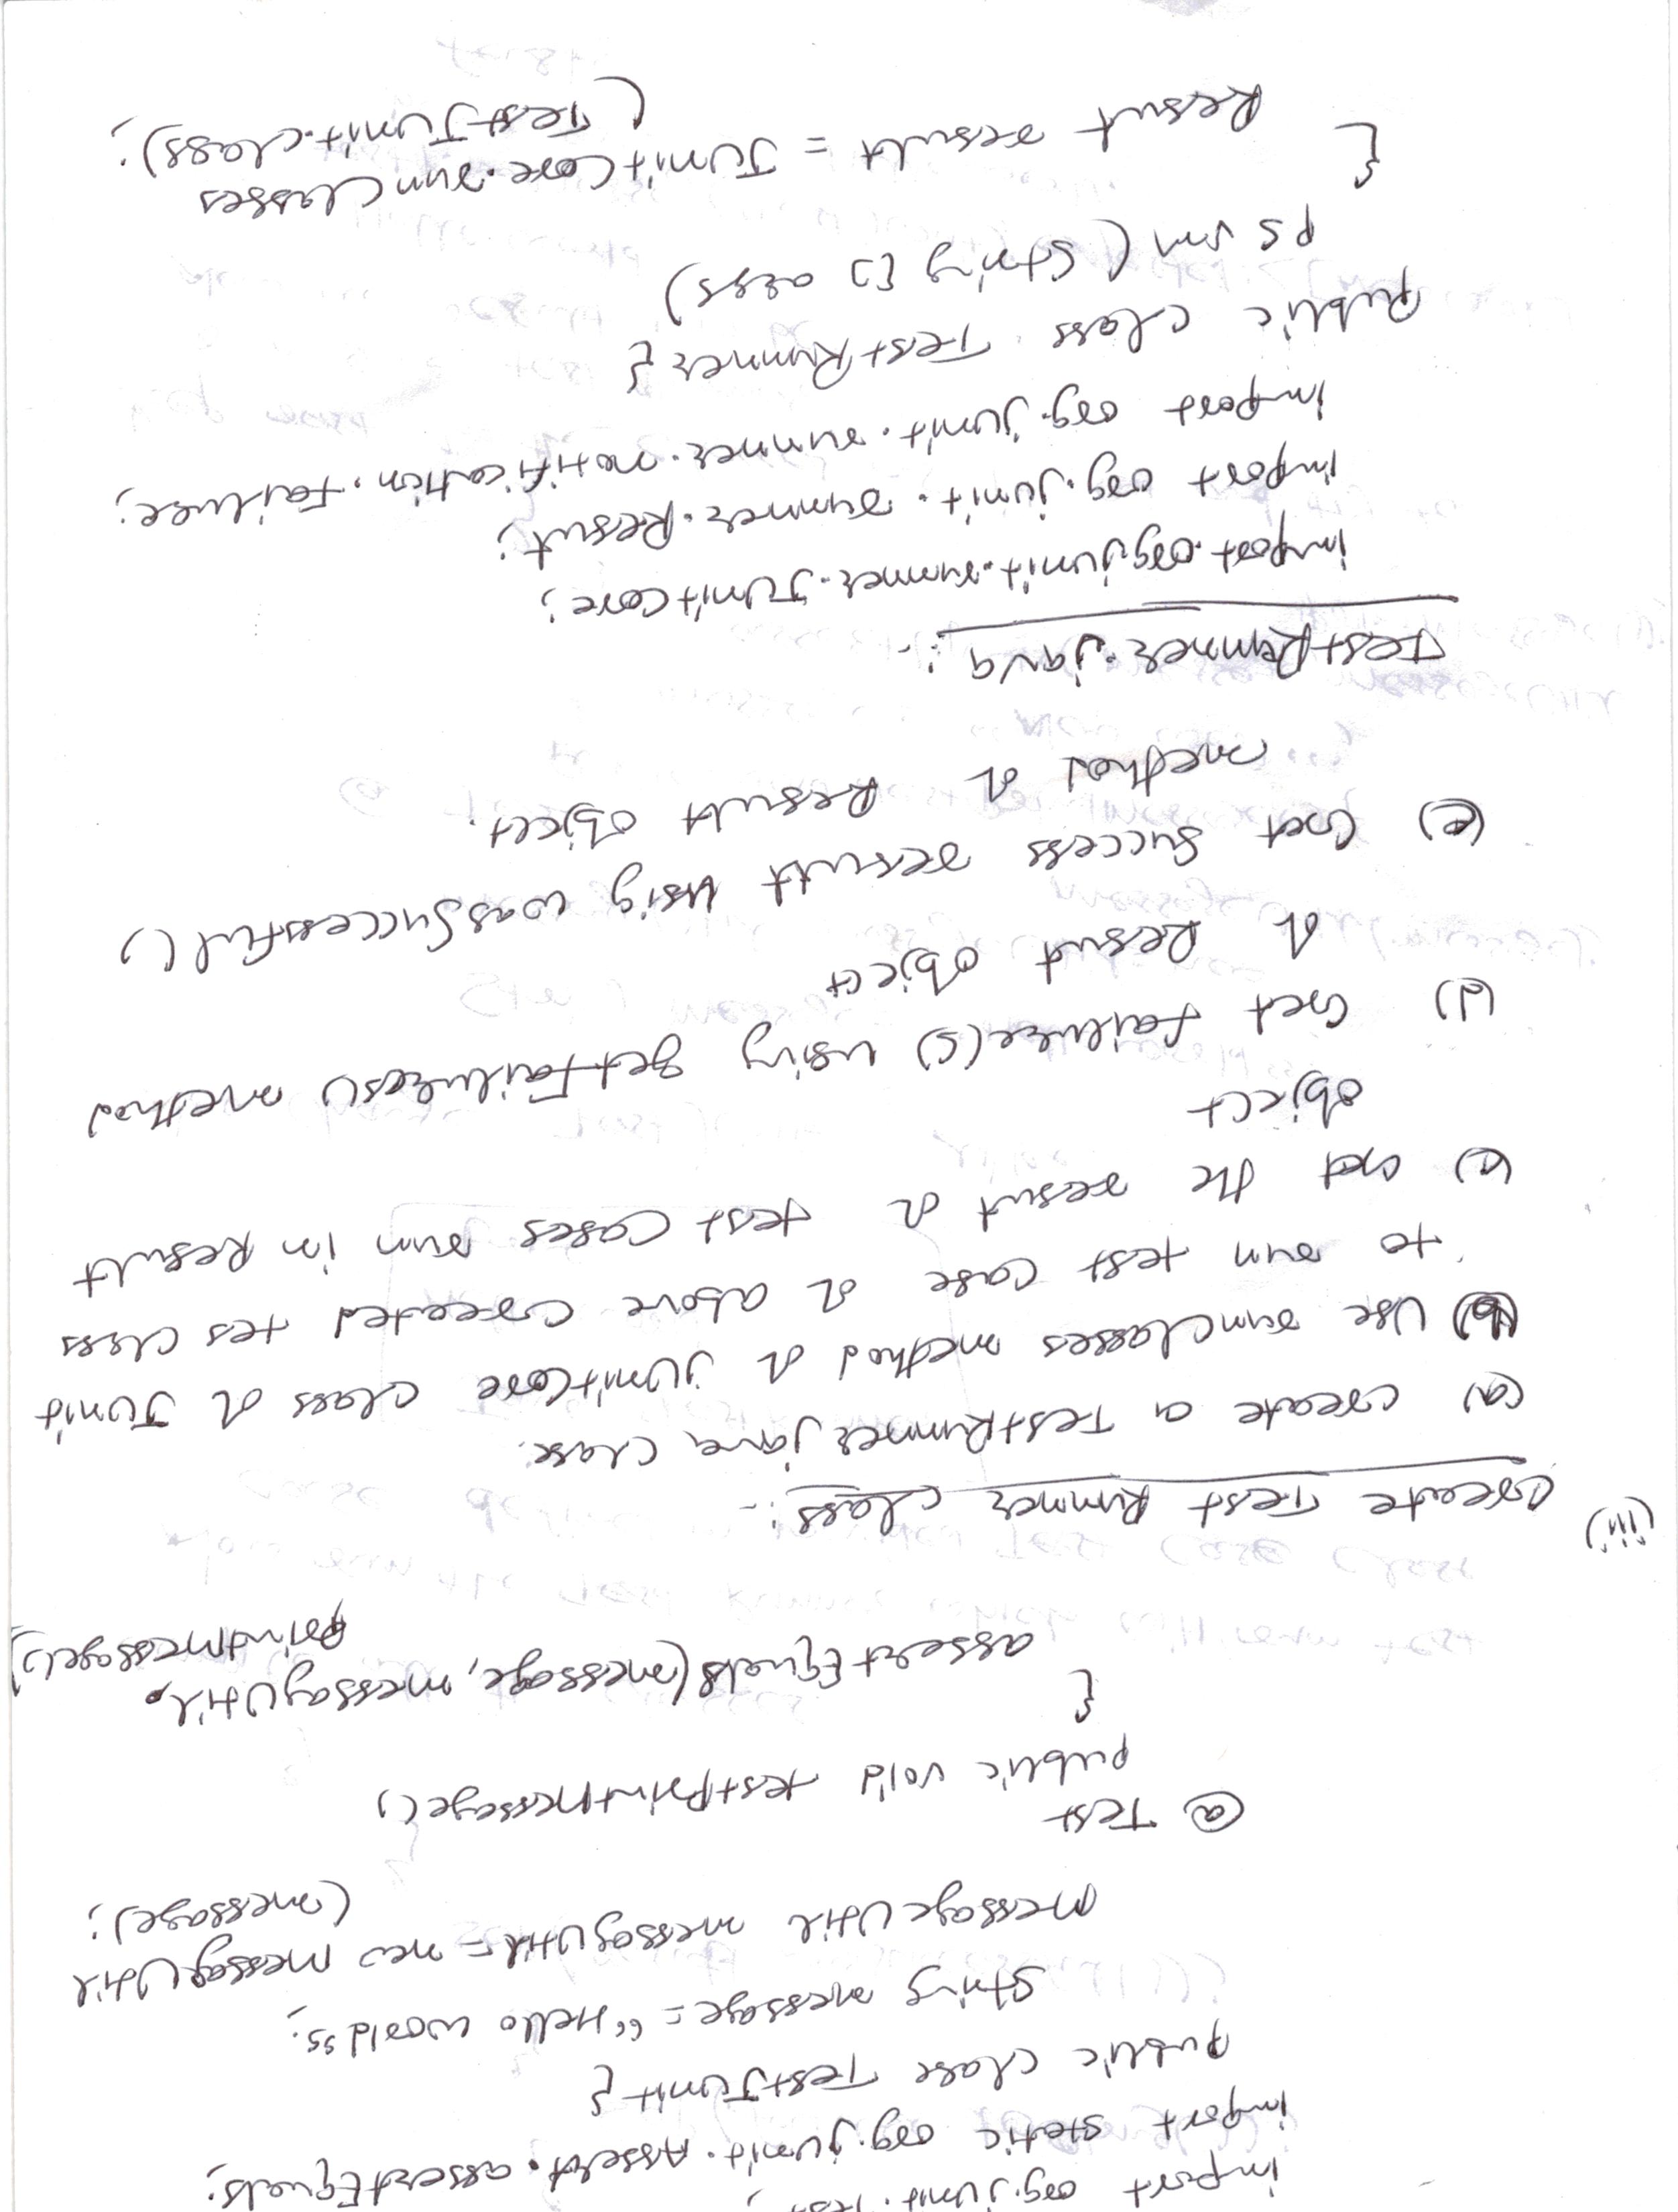 import org.junit.Test;
import static org.junit.Assert.assertEquals;
public class TestJunit {
String message = "Hello world";
MessageUtil messagUtil = new MessagUtil
(message);
@ Test
public void testPrintMessage()
{
assertEquals(message, messagUtil.
printMessage());
(iii) Create Test Runner class:-
(a) create a TestRunner java class.
(b) Use runclasses method of JUnitCore class of Junit
to run test case of above created tes class
(c) Get the result of test cases run in Result
object
(d) Get failure(s) using getFailures() method
of Result object
(e) Get success result using wasSuccessful()
method of Result object.
TestRunner.java :-
import.org.junit.runner.JUnitCore;
import org.junit.runner.Result;
import org.junit.runner.notification.Failure;
public class TestRunner {
ps vm (String [] args)
{
Result result = JUnitCore.runClasses
(TestJUnit.class);